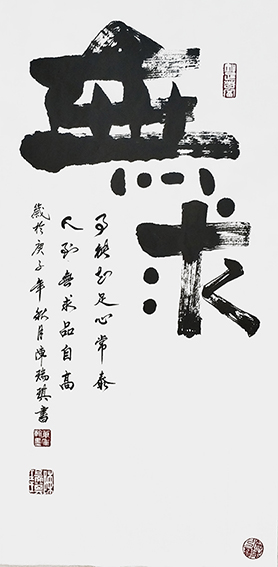 無求
事能知足心常泰
人到無求品自高
歲於庚子年秋月陳瑞琪書